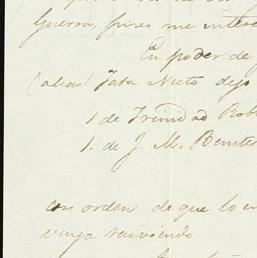 Guerra, pues me intere
En poder de
(alias) Tata Nieto dejo
1 de Trinidad Rob
1. de J. M. Benites
con orden de que lo
vaya reuniendo.